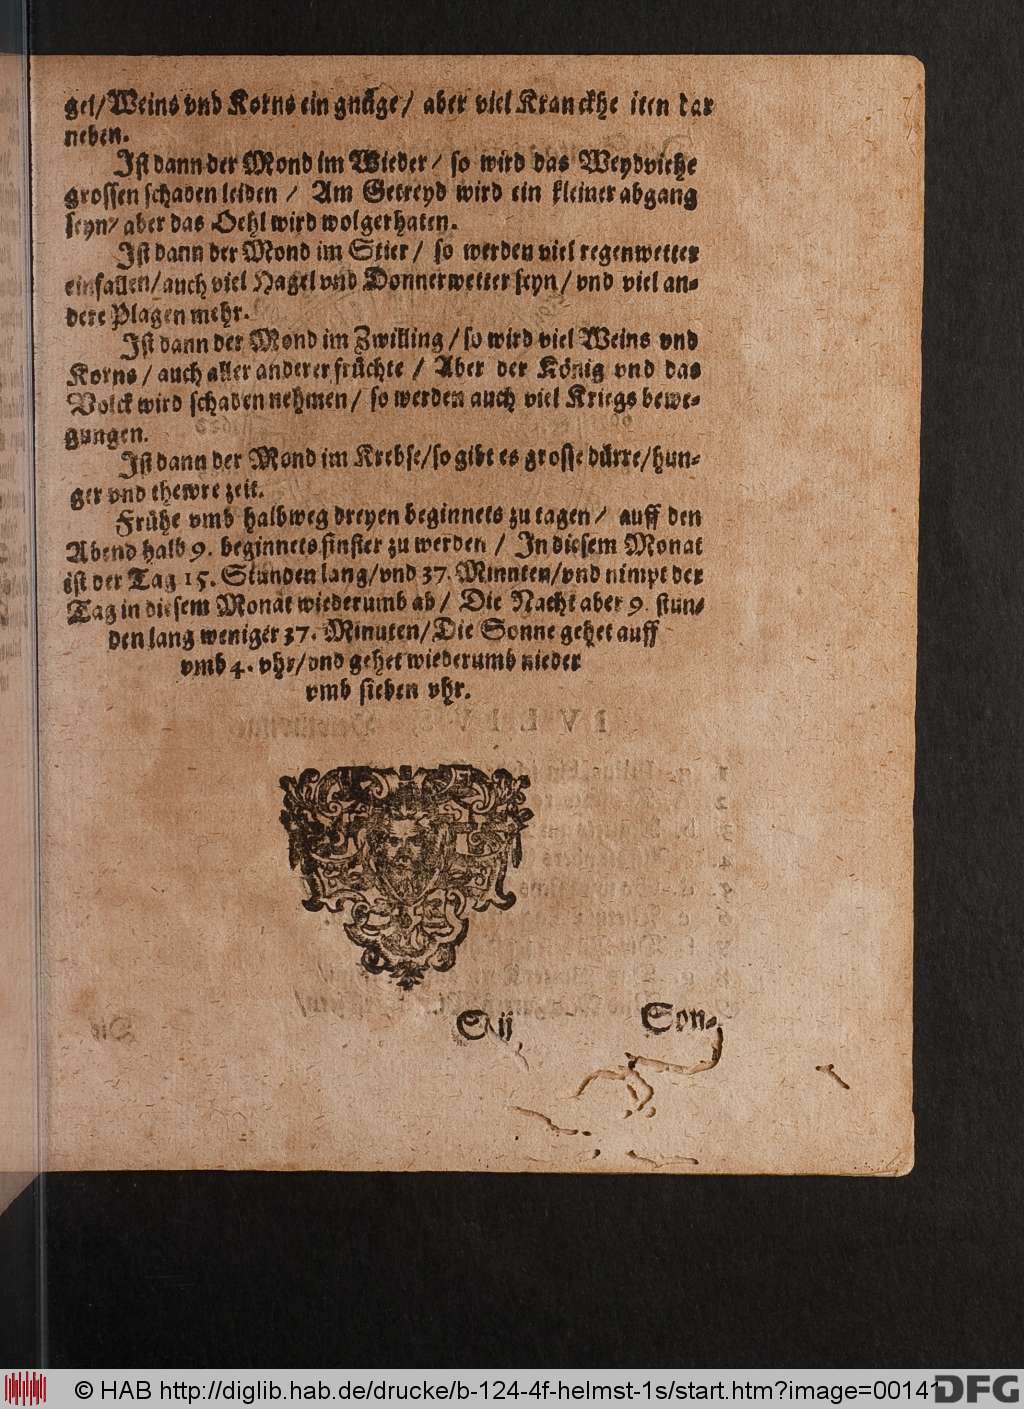 gel/ Weins vnd Korns ein gnüge/ aber viel Kranckhe iten dar
neben.
Ist dann der Mond im Wieder/ so wird das Weydviehe
grossen schaden leiden/ Am Getreyd wird ein kleiner abgang
seyn/ aber das Oehl wird wolgerhaten.
Ist dann der Mond im Stier/ so werden viel regenwetter
einfallen/ auch viel Hagel vnd Donnerwetter seyn/ vnd viel an-
dere Plagen mehr.
Ist dann der Mond im Zwilling/ so wird viel Weins vnd
Korns/ auch aller anderer früchte/ Aber der König vnd das
Volck wird schaden nehmen/ so werden auch viel Kriegs bewe-
gungen.
Ist dann der Mond im Krebse/ so gibt es grosse dürre/ hun-
ger vnd thewre zeit.
Frühe vmb halbweg dreyen beginnets zu tagen/ auff den
Abend halb 9. beginnets finster zu werden/ In diesem Monat
ist der Tag 15. Stunden lang/ vnd 37. Minnten/ vnd nimpt der
Tag in diesem Monat wiederumb ab/ Die Nacht aber 9. stun-
den lang weniger 37. Minuten/ Die Sonne gehet auff
vmb 4. vhr/ vnd gehet wiederumb nieder
vmb sieben vhr.
S ij Son-
© HAB http://diglib.hab.de/drucke/b-124-4f-helmst-1s/start.htm?image=00141
DFG